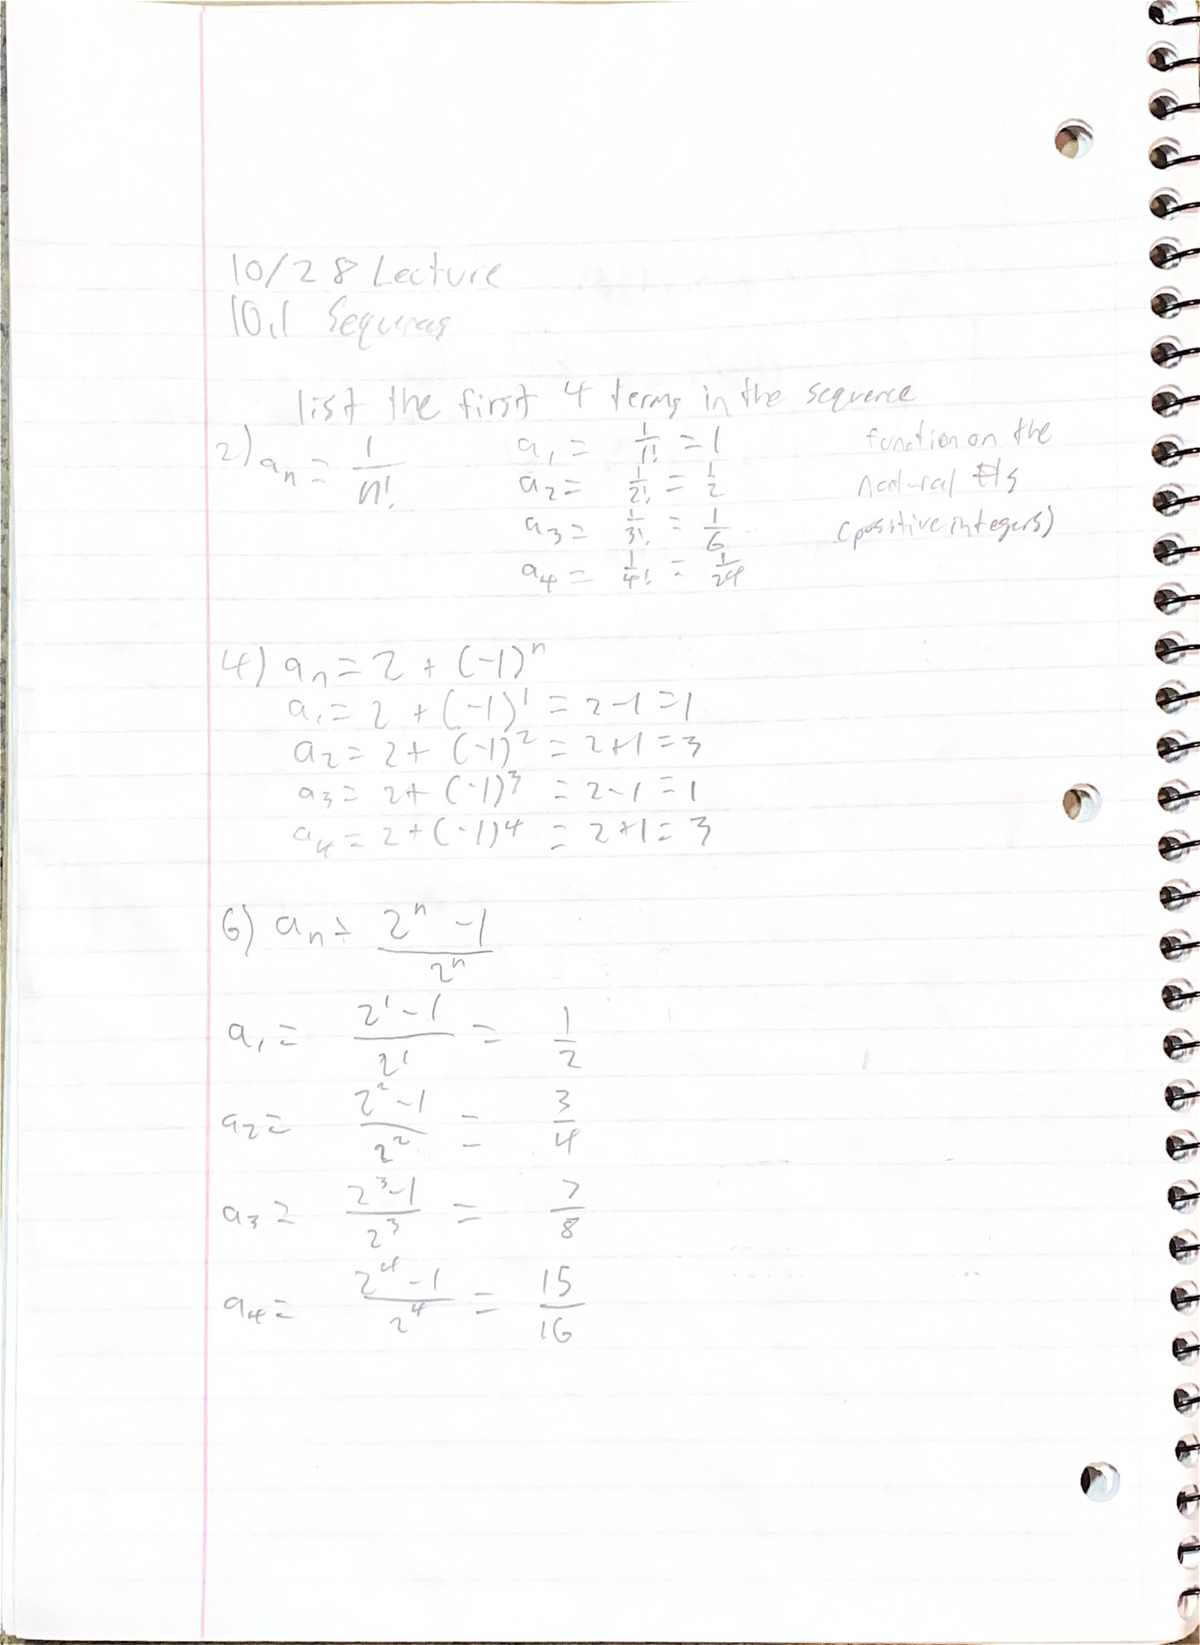 10/28 Lecture
10.1 Sequences
list the first 4 terms in the sequence
2) aₙ = 1/n!
a₁ = 1/1! = 1
a₂ = 1/2! = 1/2
a₃ = 1/3! = 1/6
a₄ = 1/4! = 1/24
function on the
natural #'s
(positive integers)
4) aₙ = 2 + (-1)ⁿ
a₁ = 2 + (-1)¹ = 2-1 = 1
a₂ = 2 + (-1)² = 2+1 = 3
a₃ = 2+ (-1)³ = 2-1 = 1
a₄ = 2+(-1)⁴ = 2+1 = 3
6) aₙ = (2ⁿ - 1)/2ⁿ
a₁ = (2¹ - 1)/2¹ = 1/2
a₂ = (2² - 1)/2² = 3/4
a₃ = (2³ - 1)/2³ = 7/8
a₄ = (2⁴ - 1)/2⁴ = 15/16